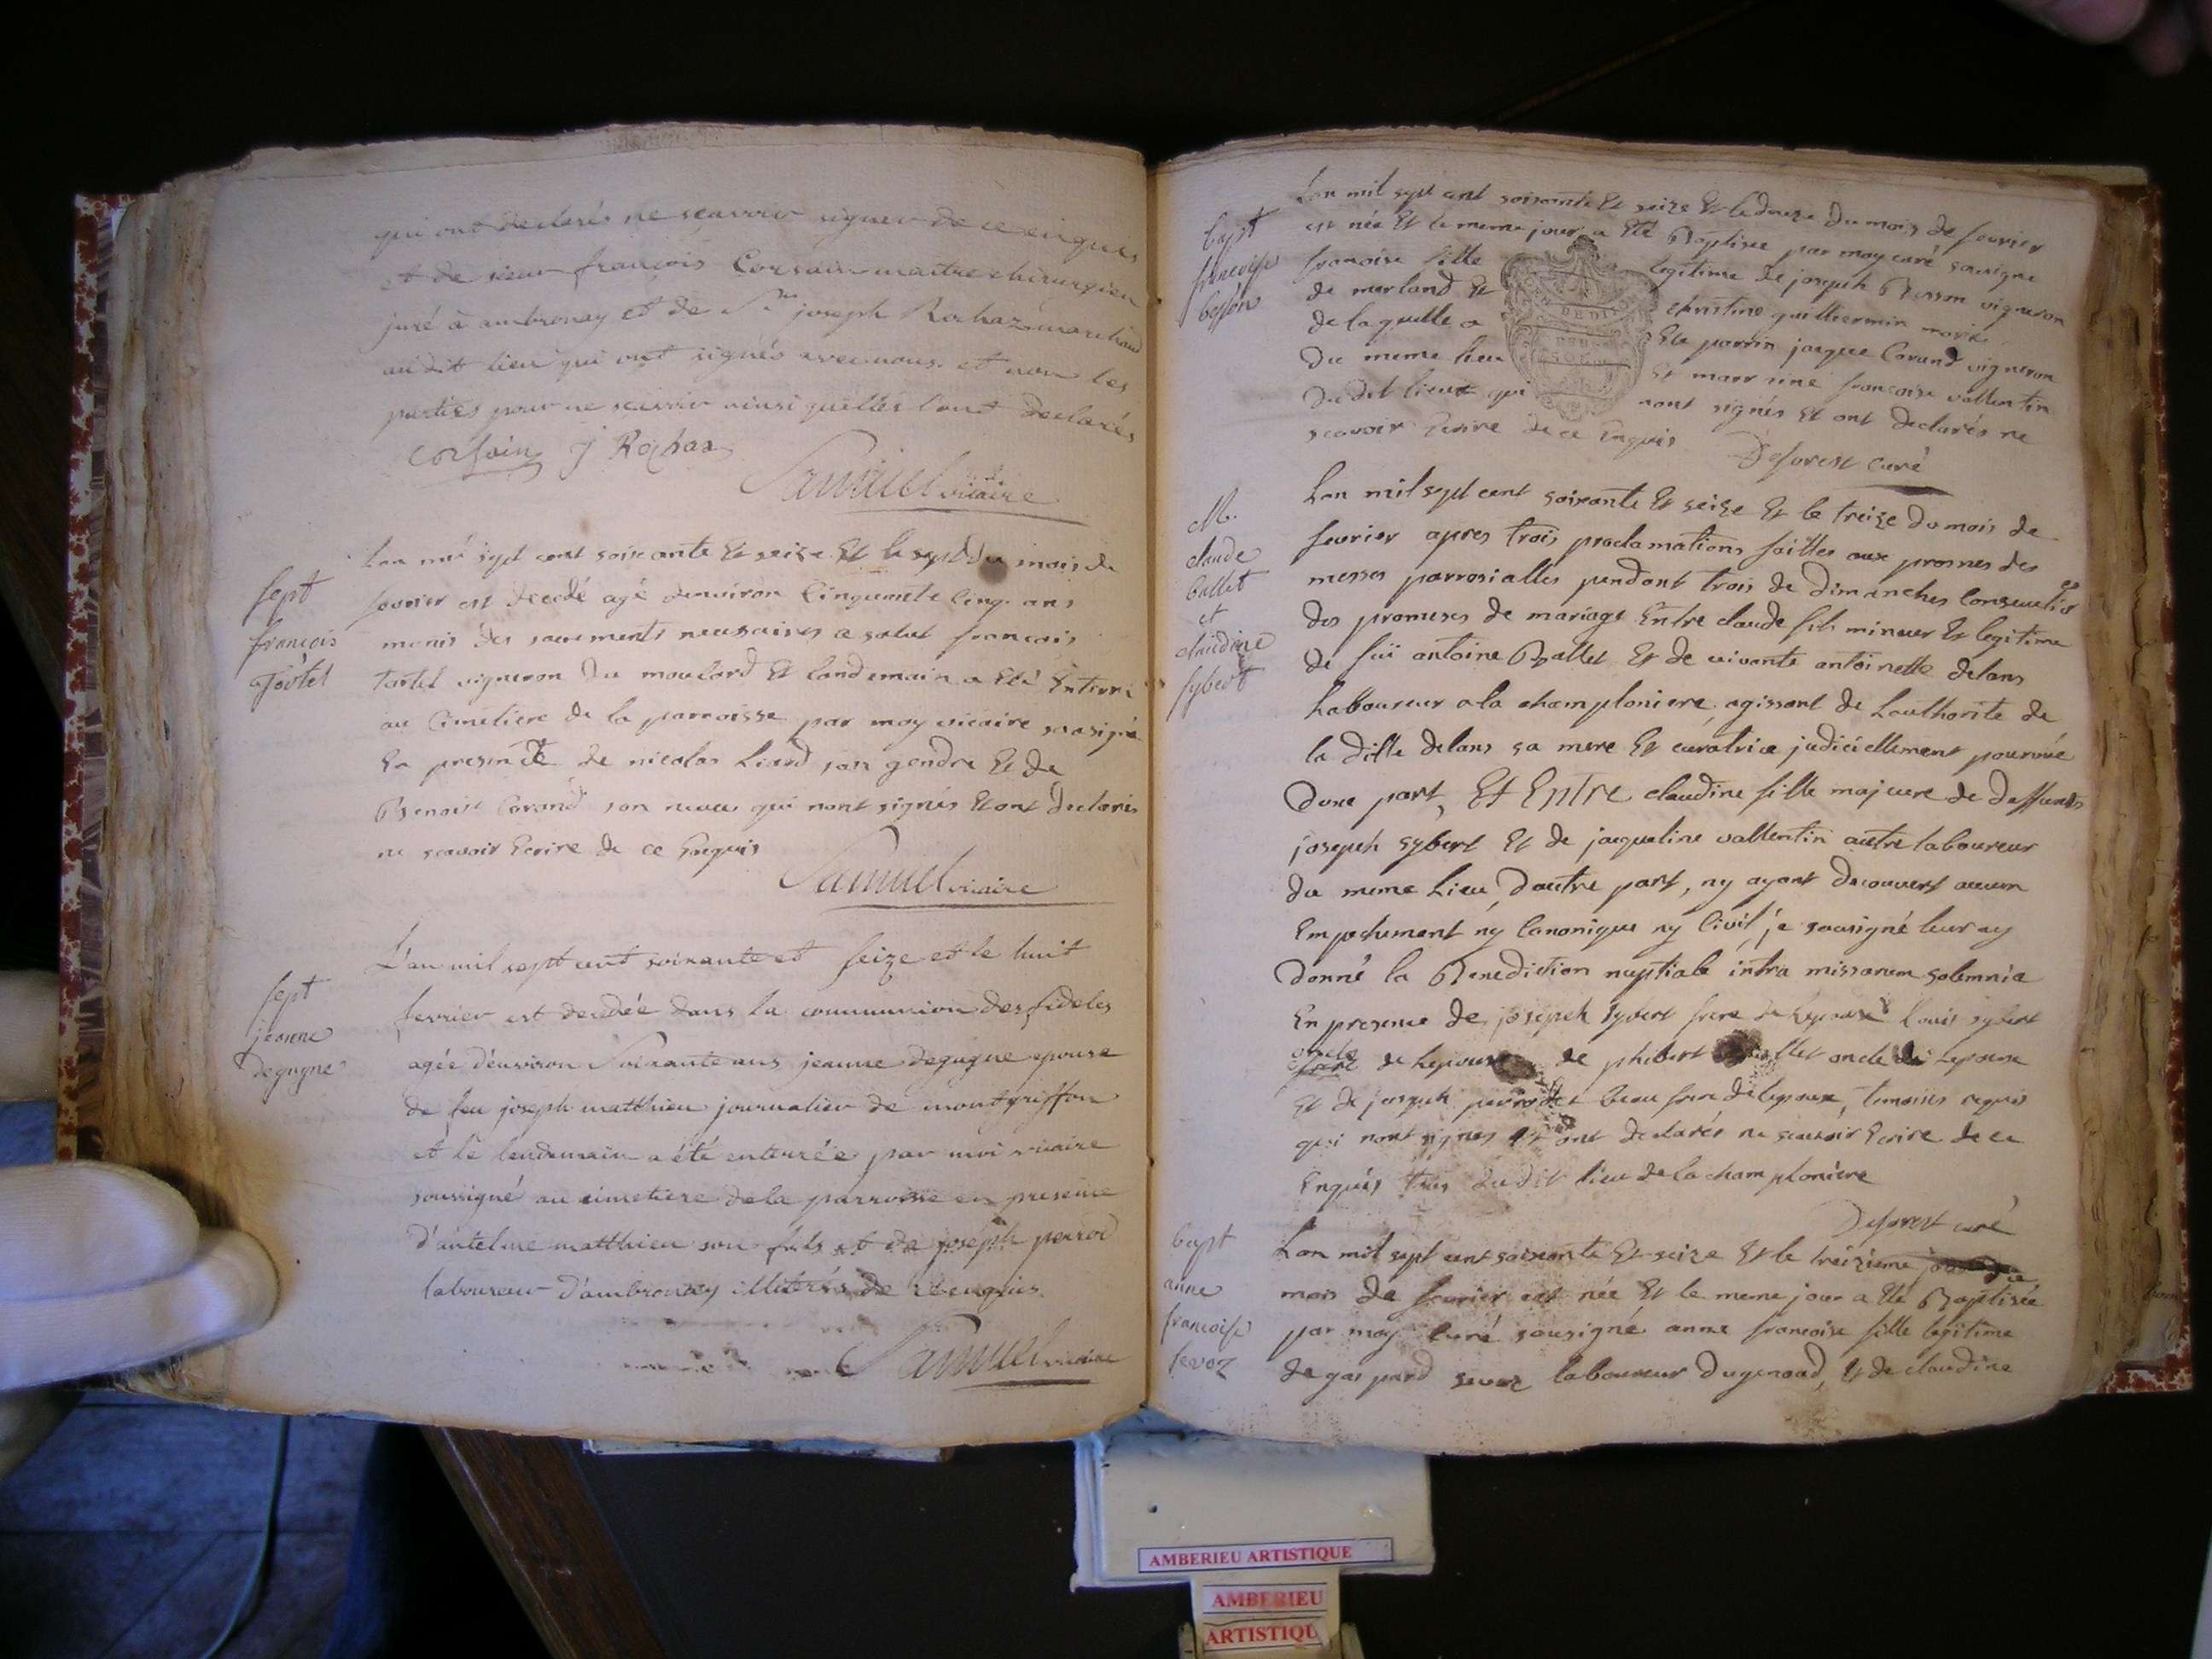 qui ont declarés ne sçavoir signer de ce enquis
et de sieur françois Corsain maitre chirurgien
juré à ambronay et de Sr joseph Rochaz marchand
au dit lieu qui ont signés avec nous et non les
parties pour ne scavoir ainsi quelles l'ont declarés
Corsain J Rochaz
Samuel vicaire
sept
françois
Tortel
Lan mil sept cent soixante et seize Et le sept du mois de
fevrier est decedé agé denviron Cinquante Cinq ans
munis des sacrements necessaires a salut francois
Tortel vigneron du moulard Et landemain a Eté Enterré
au Cimetiere de la parroisse par moy vicaire sousigné
En presence de nicolas Liard son gendre Et de
Benoist Corand son neveu qui nont signés Et ont declarés
ne scavoir Ecrire de ce Enquis
Samuel vicaire
sept
jeanne
degugne
L'an mil sept cent soixante et seize et le huit
fevrier est decedée dans la communion des fideles
agée d'environ Soixante ans jeanne degugne epouse
de feu joseph matthieu journalier de montgriffon
et le lendemain a été enterrée par moi vicaire
soussigné au cimetiere de la parroisse en presence
d'antelme matthieu son fils et de joseph perrod
laboureur d'ambronay illiterés de ce enquis
Samuel vicaire
bapt
francoise
besson
Lan mil sept cent soixante Et seize Et le douze du mois de fevrier
est née Et le meme jour a Eté Baptisee par moy curé sousigné
francoise fille legitime de joseph Besson vigneron
de merland Et christine guilliermin marié
de laquelle a Ete parrin jacque Corand vigneron
du meme lieu Et marrine francoise vallentin
du dit lieux qui nont signés Et ont declarés ne
scavoir Ecrire de ce Enquis
Deforest curé
M.
claude
ballet
et
claudine
sybert
Lan mil sept cent soixante Et seize Et le treize du mois de
fevrier apres trois proclamations faittes aux prosnes des
messes parrosialles pendant trois de dimanches Consecutifs
des promeses de mariage Entre claude fils mineur Et legitime
de fuü antoine Ballet Et de vivante antoinette delans
Laboureur a la champloniere, agissant de Lauthorite de
la ditte delans sa mere Et curatrice judiciellement pourvüe
dune part, Et Entre claudine fille majeure de deffunts
joseph sybert Et de jacqueline vallentin autre laboureur
du meme Lieu, dautre part, ny ayant decouvert aucun
Empechement ny Canonique ny Civil, je sousigné leur ay
donné la Benediction nuptiale intra missarum solemnia
En presence de joseph sybert frere de Lepouse Louis sybert
oncle de Lepouse de phibert ballet oncle de Lepoux
Et de joseph perrodet beau frere de lepoux, temoins requis
qui nont signés Et ont declarés ne scavoir Ecrire de ce
Enquis tous du dit lieu de la champloniere
Deforest curé
bapt
anne
francoise
sevoz
Lan mil sept cent soixante Et seize Et le treizieme jour du
mois de fevrier est née Et le meme jour a Eté Baptisée
par moy curé sousigné anne francoise fille legitime
de gaspard sevoz laboureur du genoud, Et de claudine
AMBERIEU ARTISTIQUE
AMBERIEU
ARTISTIQU